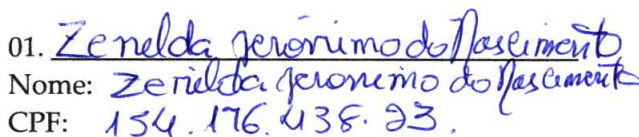 01. Zenelda Jerônimo do Nascimento
Nome: Zenelda Jeronimo do Nascimento
CPF: 154.176.438.23.